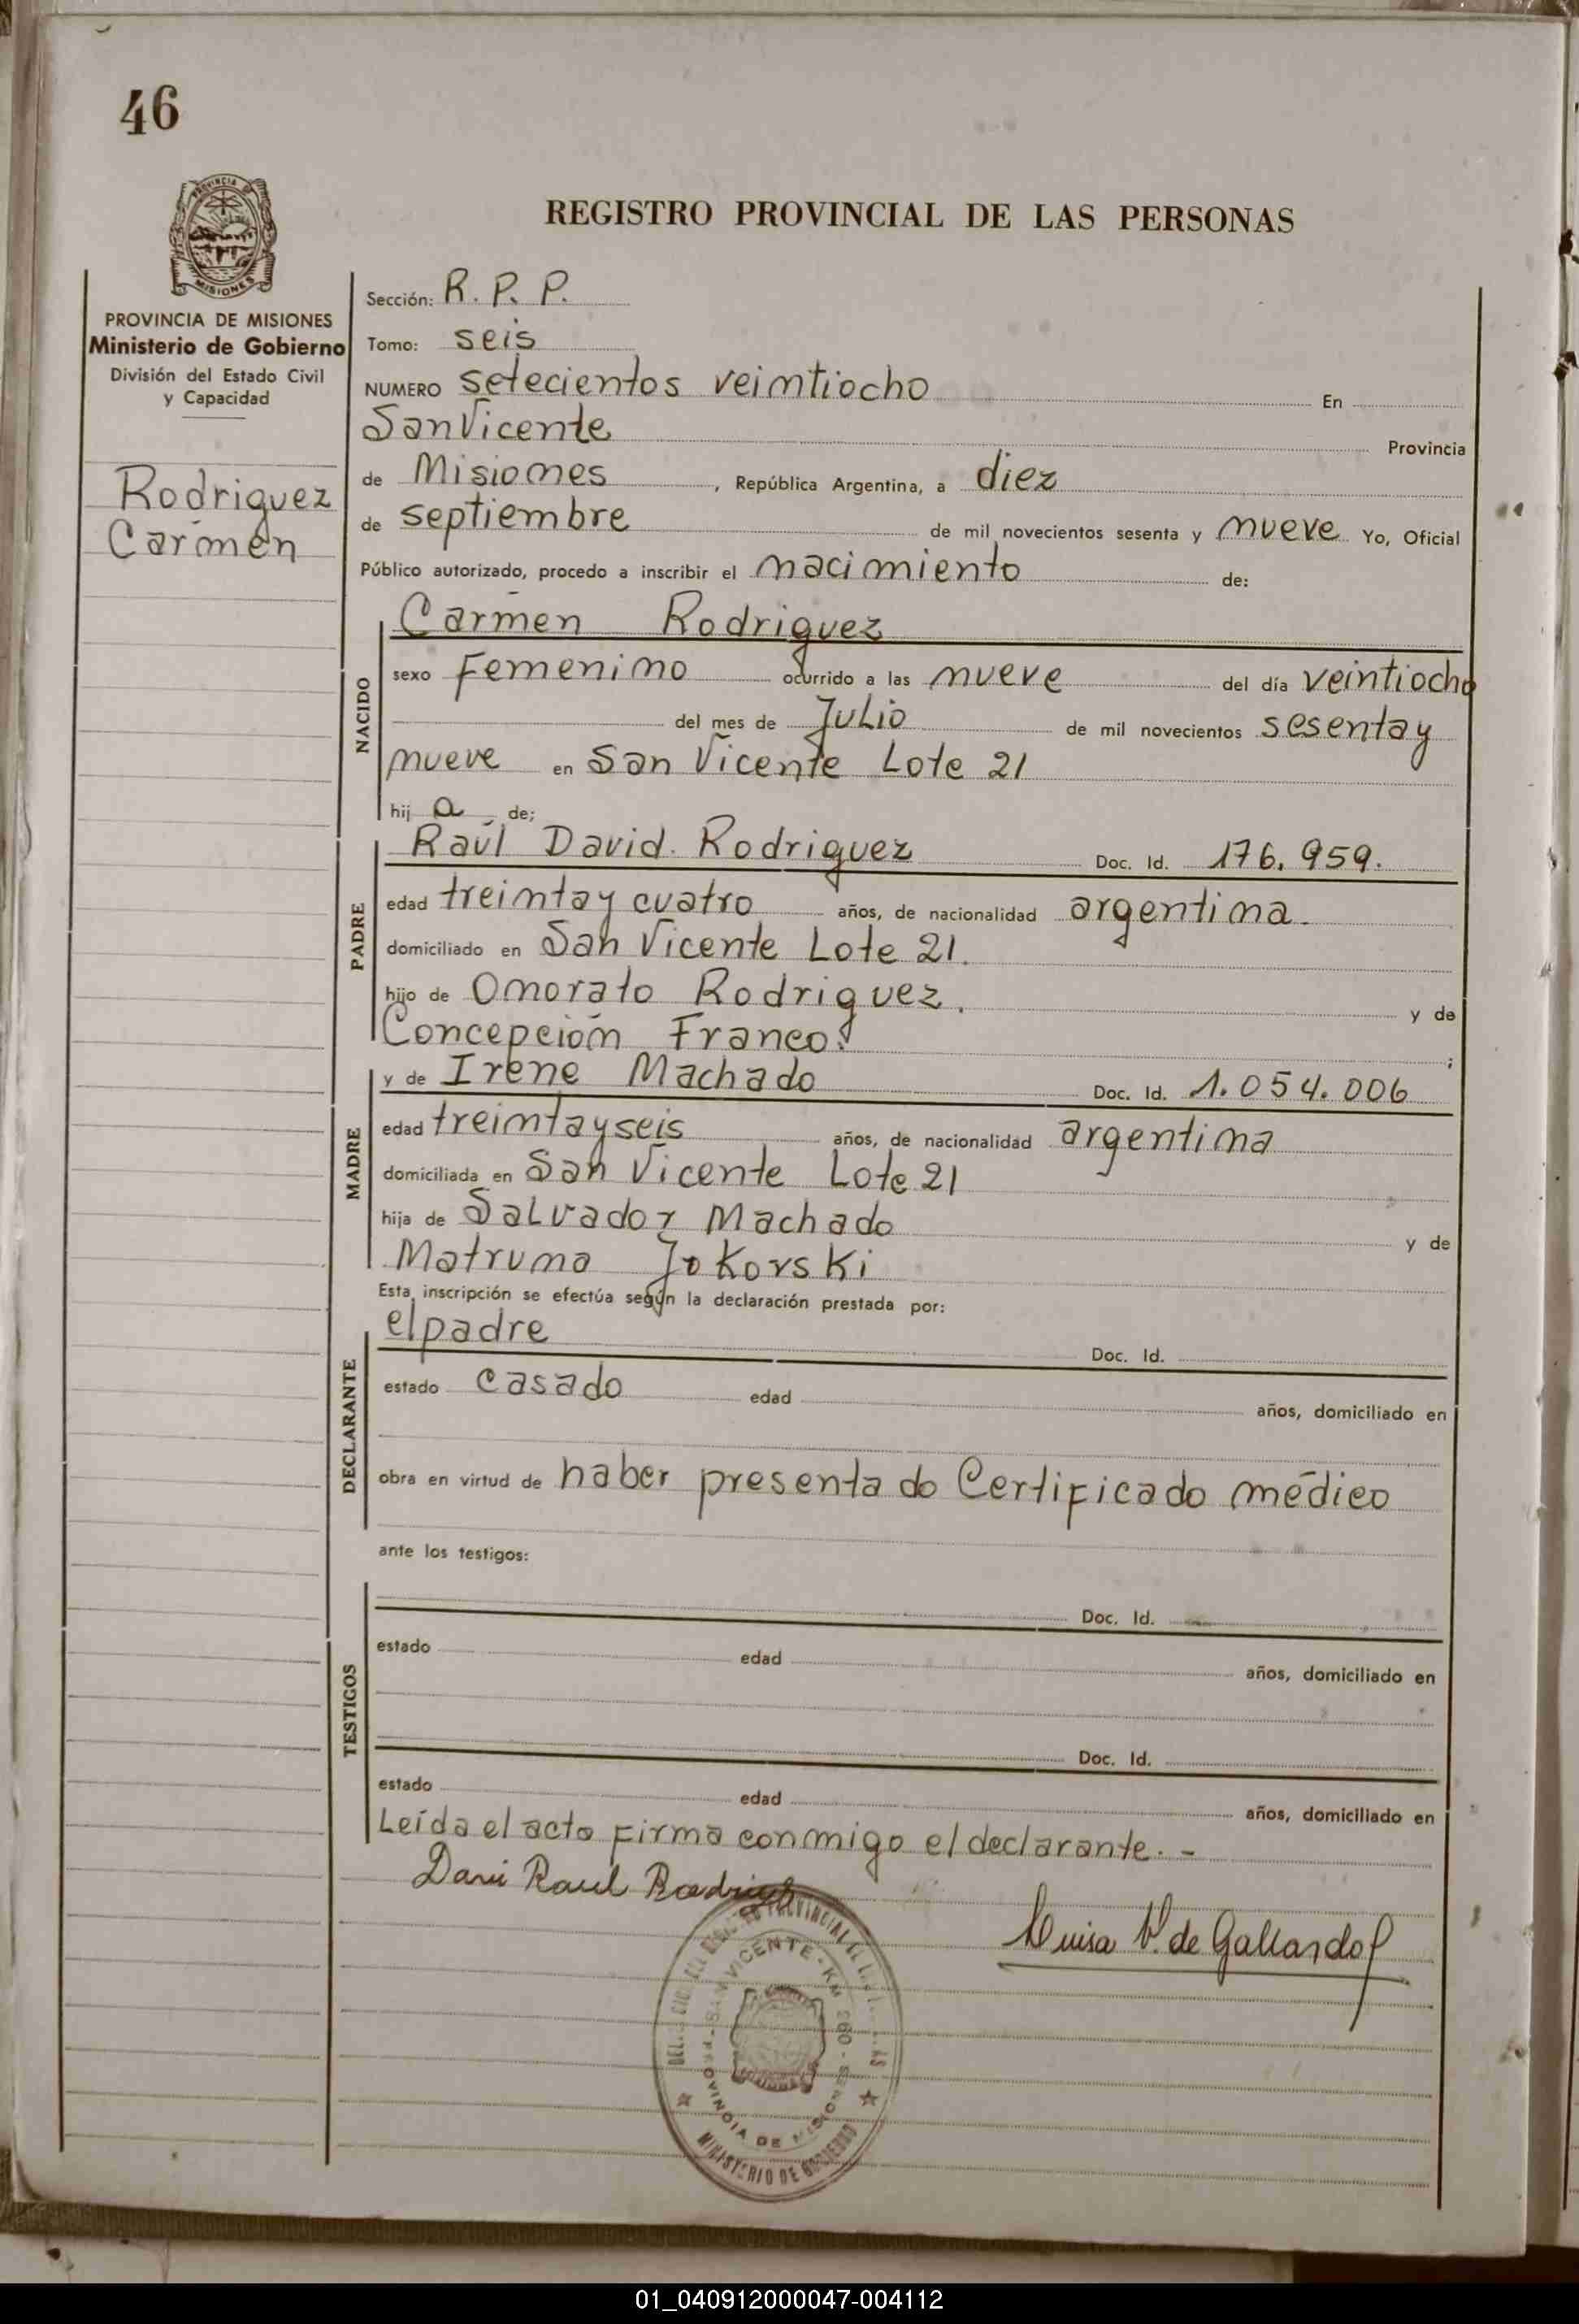 46
PROVINCIA DE
MISIONES
PROVINCIA DE MISIONES
Ministerio de Gobierno
División del Estado Civil
y Capacidad
Rodriguez
Carmen
REGISTRO PROVINCIAL DE LAS PERSONAS
Sección: R. P. P.
Tomo: seis
NUMERO setecientos veintiocho En
San Vicente Provincia
de Misiones , República Argentina, a diez
de septiembre de mil novecientos sesenta y nueve Yo, Oficial
Público autorizado, procedo a inscribir el nacimiento de:
NACIDO
Carmen Rodriguez
sexo Femenino ocurrido a las nueve del día veintiocho
del mes de Julio de mil novecientos sesenta y
nueve en San Vicente Lote 21
hij a de;
PADRE
Raúl David. Rodriguez Doc. Id. 176.959.
edad treinta y cuatro años, de nacionalidad argentina.
domiciliado en San Vicente Lote 21.
hijo de Onorato Rodriguez. y de
Concepción Franco. ;
MADRE
y de Irene Machado Doc. Id. 1.054.006
edad treinta y seis años, de nacionalidad argentina
domiciliada en San Vicente Lote 21
hija de Salvador Machado y de
Matruna Jokorski
Esta inscripción se efectúa según la declaración prestada por:
DECLARANTE
el padre Doc. Id.
estado casado edad años, domiciliado en
obra en virtud de haber presentado Certificado médico
ante los testigos:
TESTIGOS
Doc. Id.
estado edad años, domiciliado en
Doc. Id.
estado edad años, domiciliado en
Leída el acta firma conmigo el declarante. -
Davi Raul Rodrigz
Luisa V. de Gallardo
PROVINCIAL DE
SAN VICENTE - KM 260 -
PROVINCIA DE MISIONES
MINISTERIO DE GOBIERNO
01_040912000047-004112